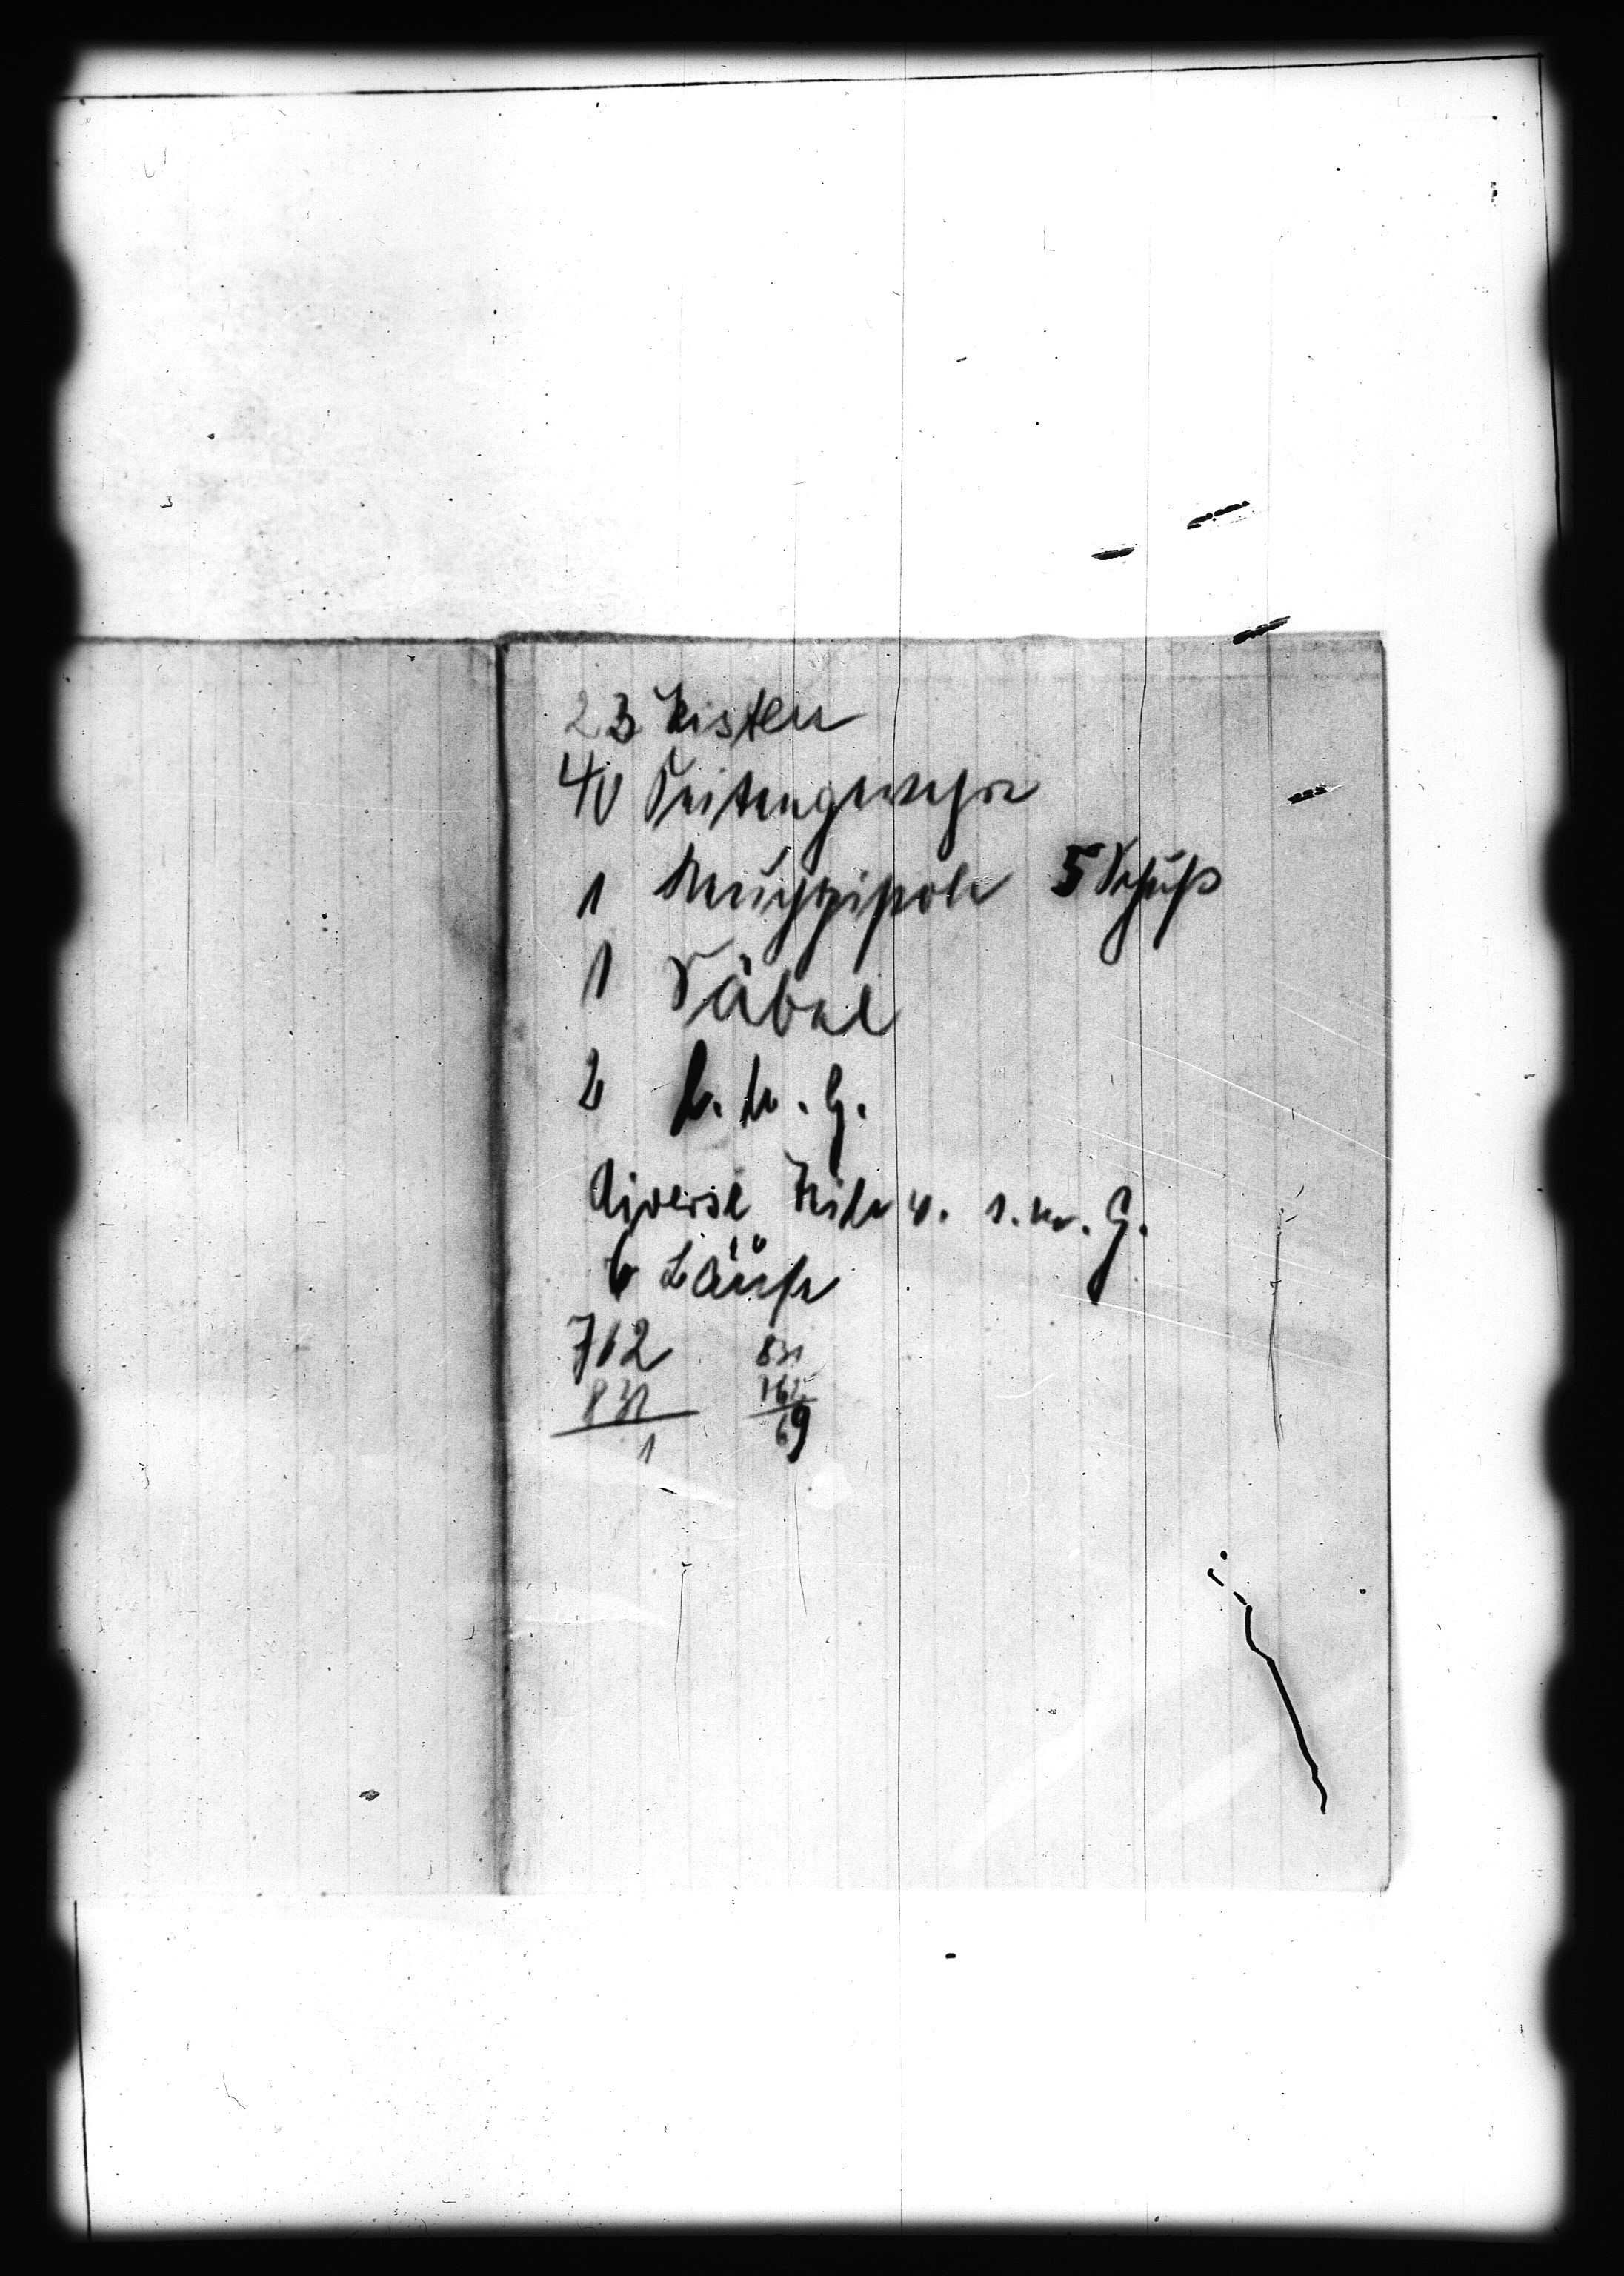 23 Kisten
40 Seitengewehre
1 Leuchtpistole 5 Schuß
1 Säbel
2 l. M. G.
diverse Teile v. s. M. G.
6 Läufe
762 831
831 762
1 69